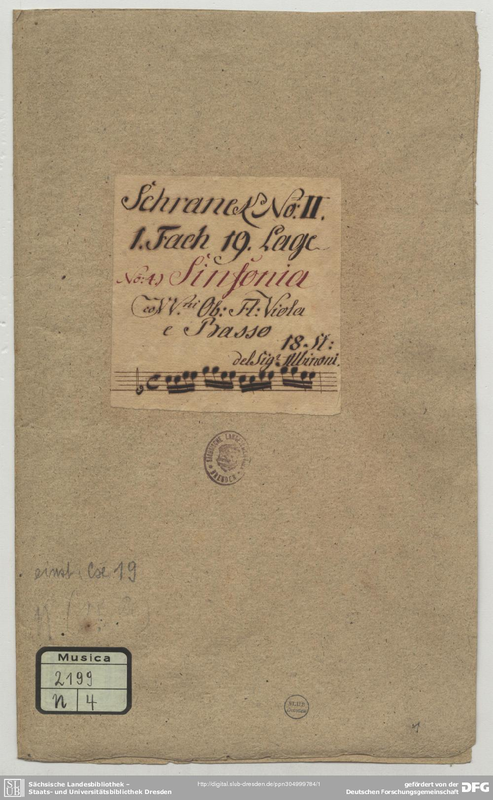 Schranck No: II.
1. Fach 19. Lage
No: 4) Sinfonia
co VV.ni Ob: Fl: Viola
e Basso
18. St:
del Sig.r Albinoni.
einst. Cx 19
Musica
2199
N 4
SLUB
Sächsische Landesbibliothek -
Staats- und Universitätsbibliothek Dresden
http://digital.slub-dresden.de/ppn304999784/1
gefördert von der
Deutschen Forschungsgemeinschaft
DFG